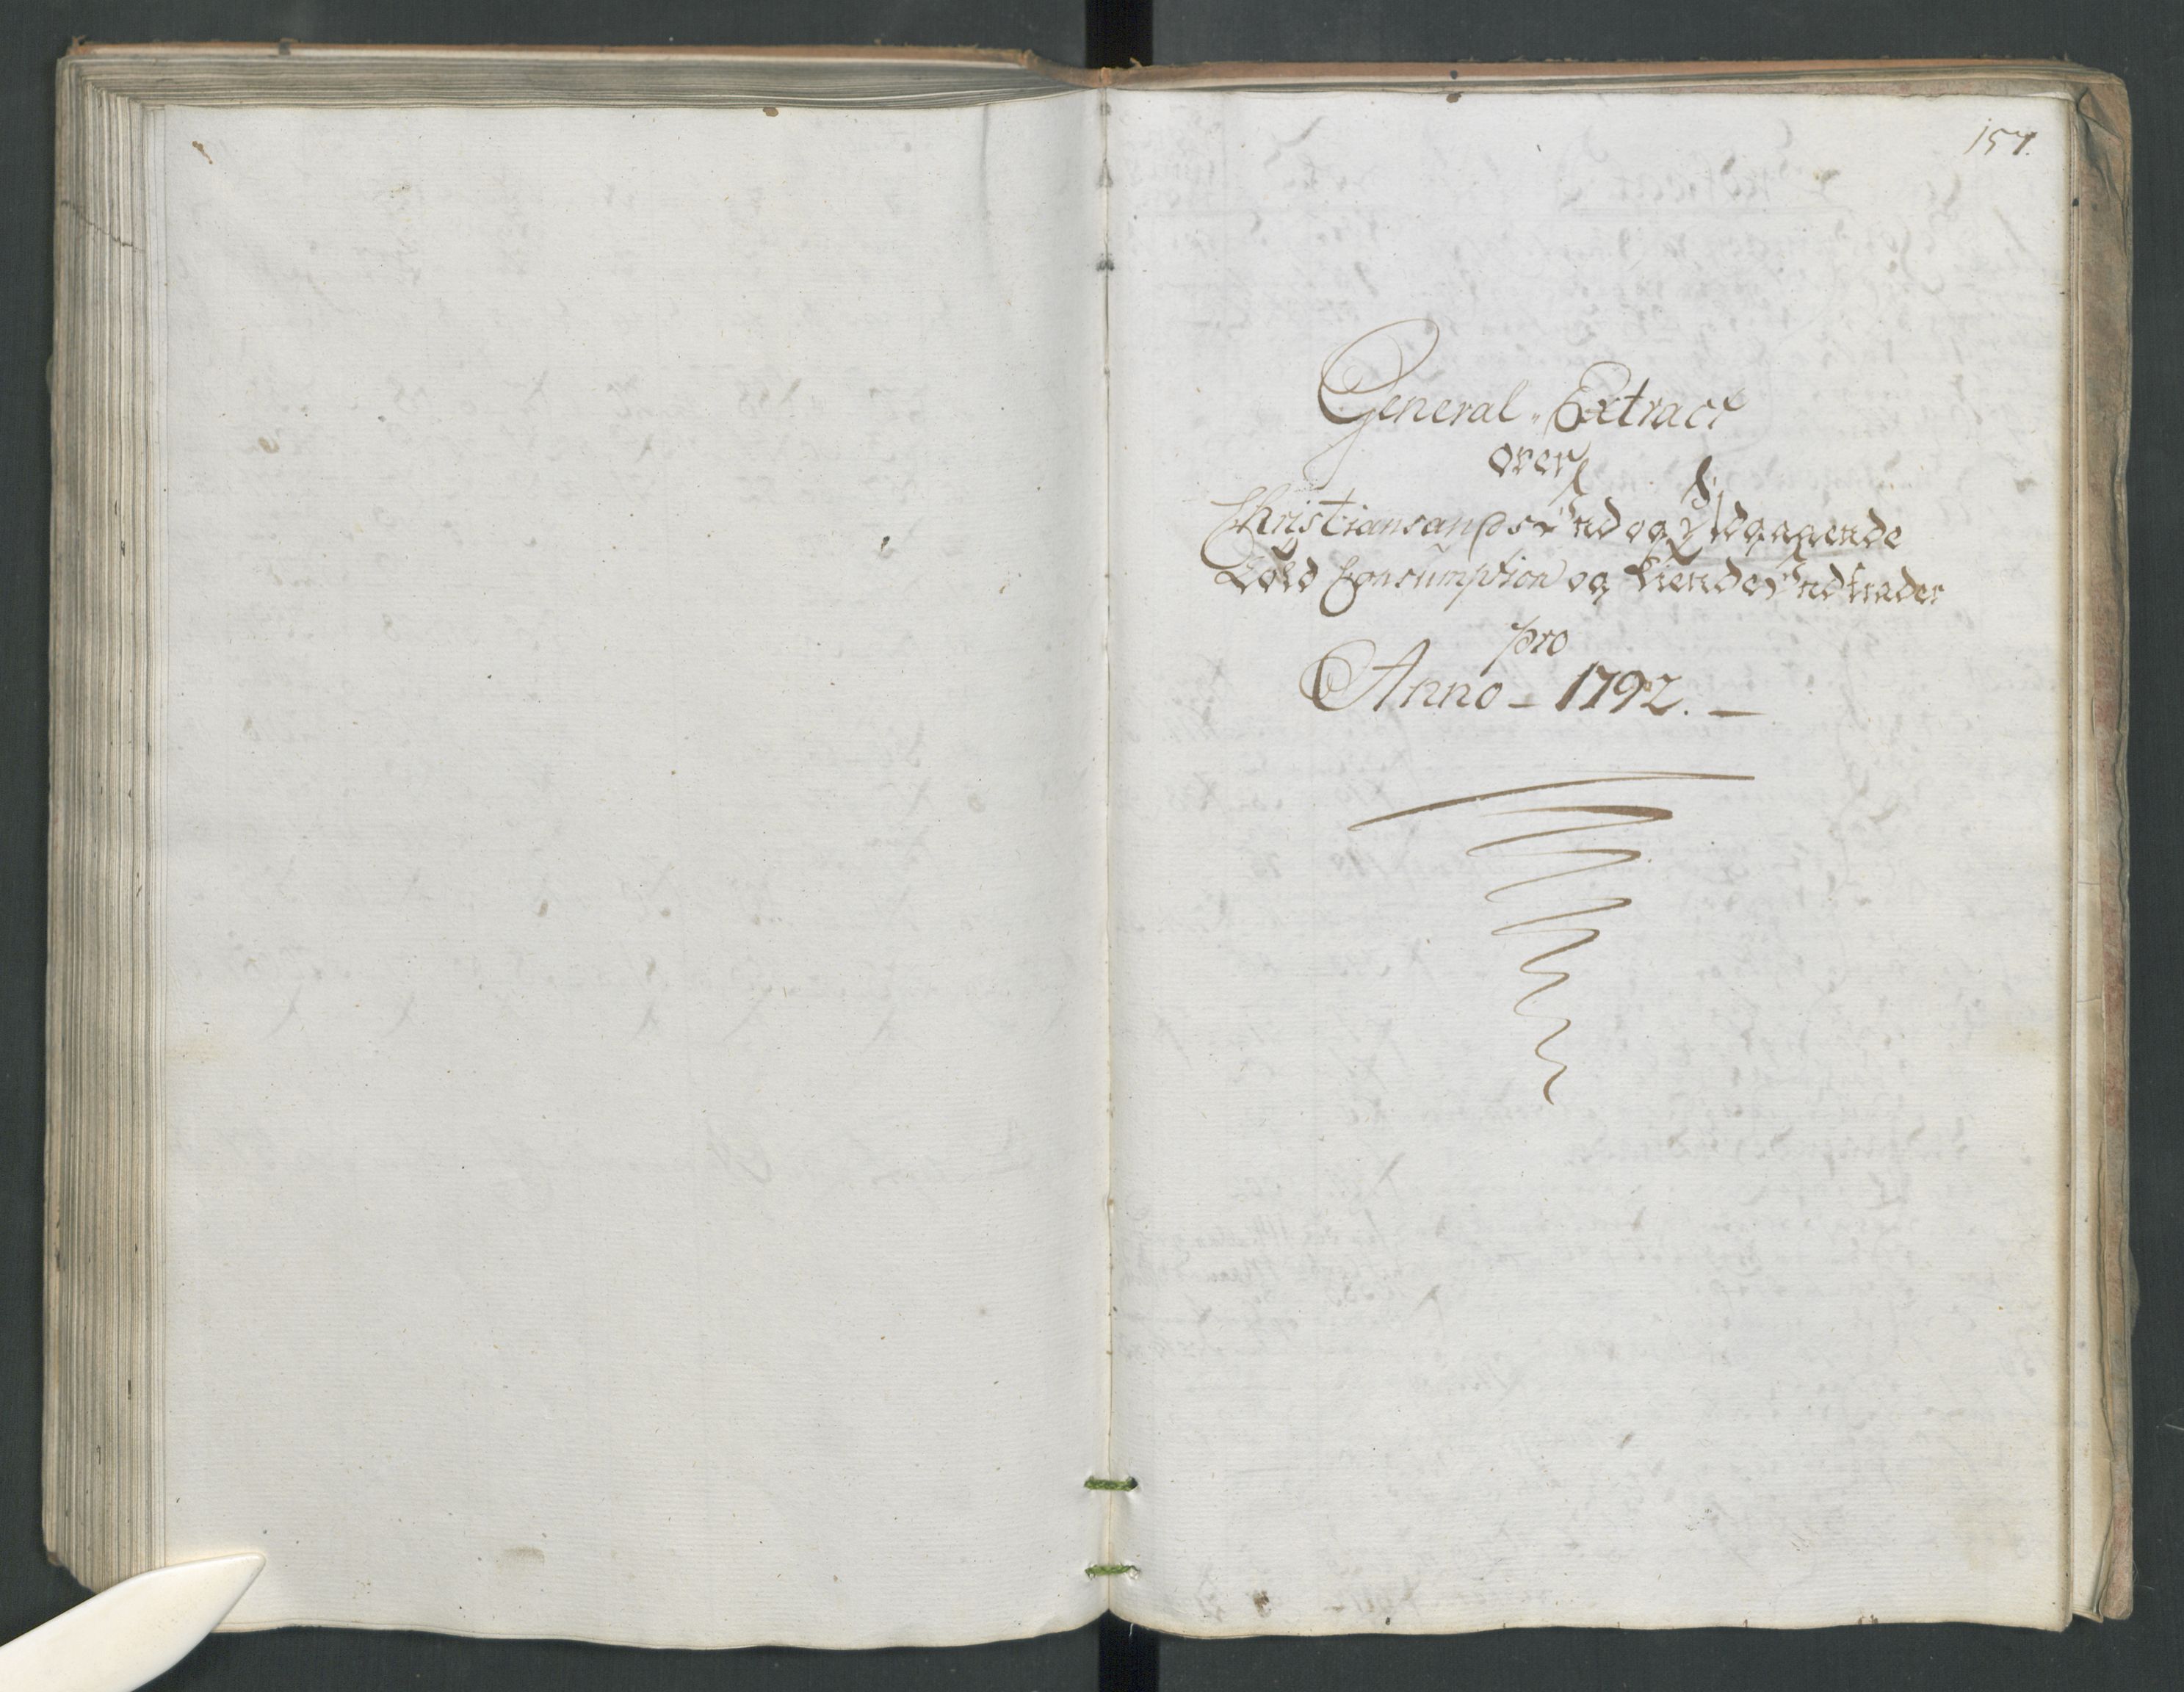 157.
General Extract
over
Christiansands Ind og Udgaaende
Told Consumption og Tiende Indtrader
pro
Anno - 1792. -